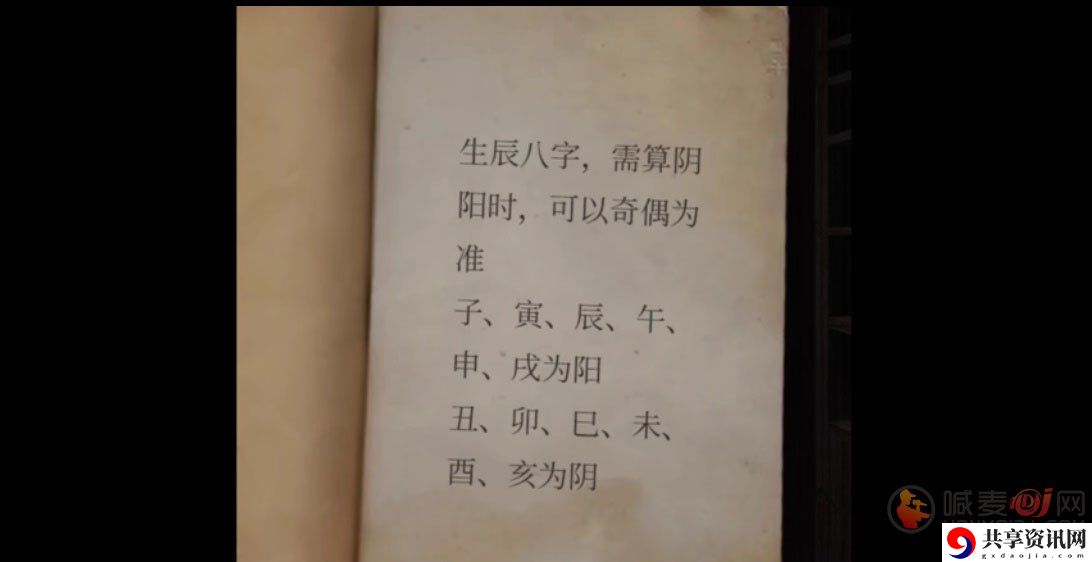 生辰八字，需算阴
阳时，可以奇偶为
准
子、寅、辰、午、
申、戌为阳
丑、卯、巳、未、
酉、亥为阴
喊麦DJ网
共享资讯网
gxdaojia.com